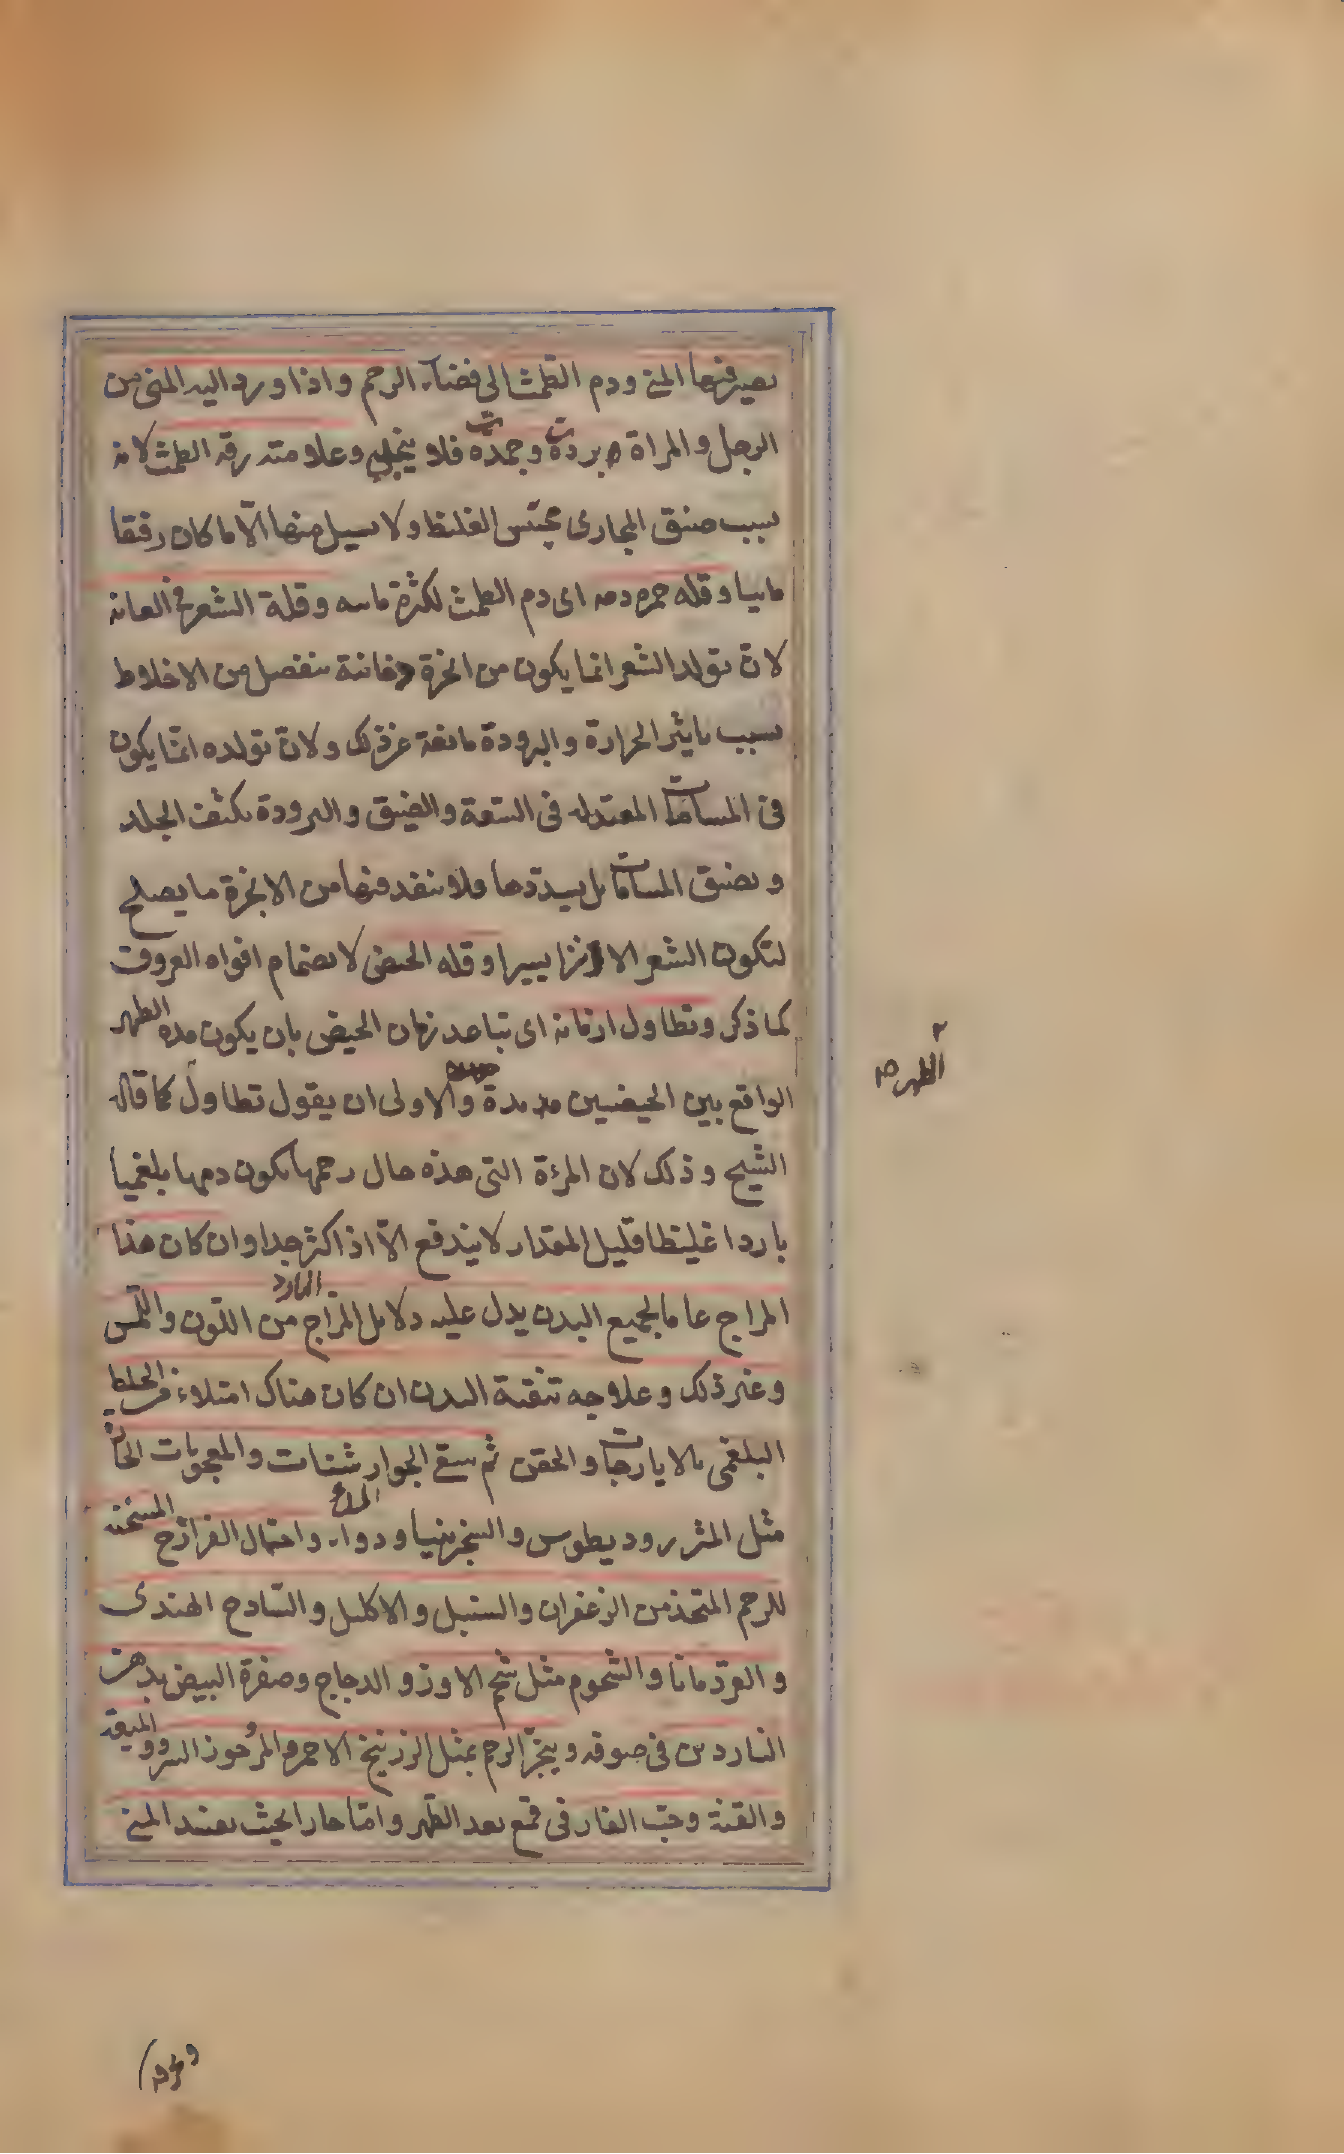 يصير فيها المنى ودم الطمث الى فضاء الرحم واذا ورد اليه المنى من
الرجل والمراة بردت وجمدت فلا ينجلب وعلامته رقة الطمث لانه
بسبب ضيق المجارى يحتبس الغليظ ولا يسيل منها الّا ما كان رقيقا
مائيا وقله حمرة دمه اى دم الطمث لكثرة مائيه وقلة الشعر فى العانه
لانّ تولد الشعر انما يكون من ابخرة دخانية تنفصل من الاخلاط
بسبب تاثير الحرارة والبرودة مانعة عن ذلك ولانّ تولده انّما يكون
فى المسامات المعتدله فى السّعة والضيق والبرودة تكثف الجلد
وتضيق المسامات بل يسدّدها فلا ينفد فيها من الابخرة ما يصلح
لتكون الشعر الا نزرا يسيرا وقله الحيض لانضمام افواه العروق
كما ذكر وتطاول ازمانه اى تباعد زمان الحيض بان يكون مدة الطهر
الواقع بين الحيضين مديدة والاولى ان يقول تطاول كما قاله
الشيخ وذلك لان المرءة التى هذه حال رحمها يكون دمها بلغميا
باردا غليظا قليل المقدار لا يندفع الّا اذا كثر جدا وان كان هذا
المزاج عاما لجميع البدن يدل عليه دلايل المزاج البارد من اللّون واللّمس
وغير ذلك وعلاجه تنقية البدن ان كان هناك امتلاء من الخلط
البلغمى بالايارجات والحقن ثم سقى الجوارشنات والمعجونات الحارة
مثل المثروديطوس والسنجرينيا ودواء المسك واحتمال الفرازج المسخنه
للرحم المتخذ من الزعفران والسنبل والاكليل والسّادج الهندى
والقردمانا والشحوم مثل شحم الاوز والدجاج وصفرة البيض بدهن
الناردين فى صوفه ويبخّر الرحم بمثل الزرنيخ الاحمر والمرّ وجوز السرو والميعة
والقنة وحبّ الغار فى قمع بعد الطّهر وامّا حار ابحيث يفسد المنى
الطهر صح